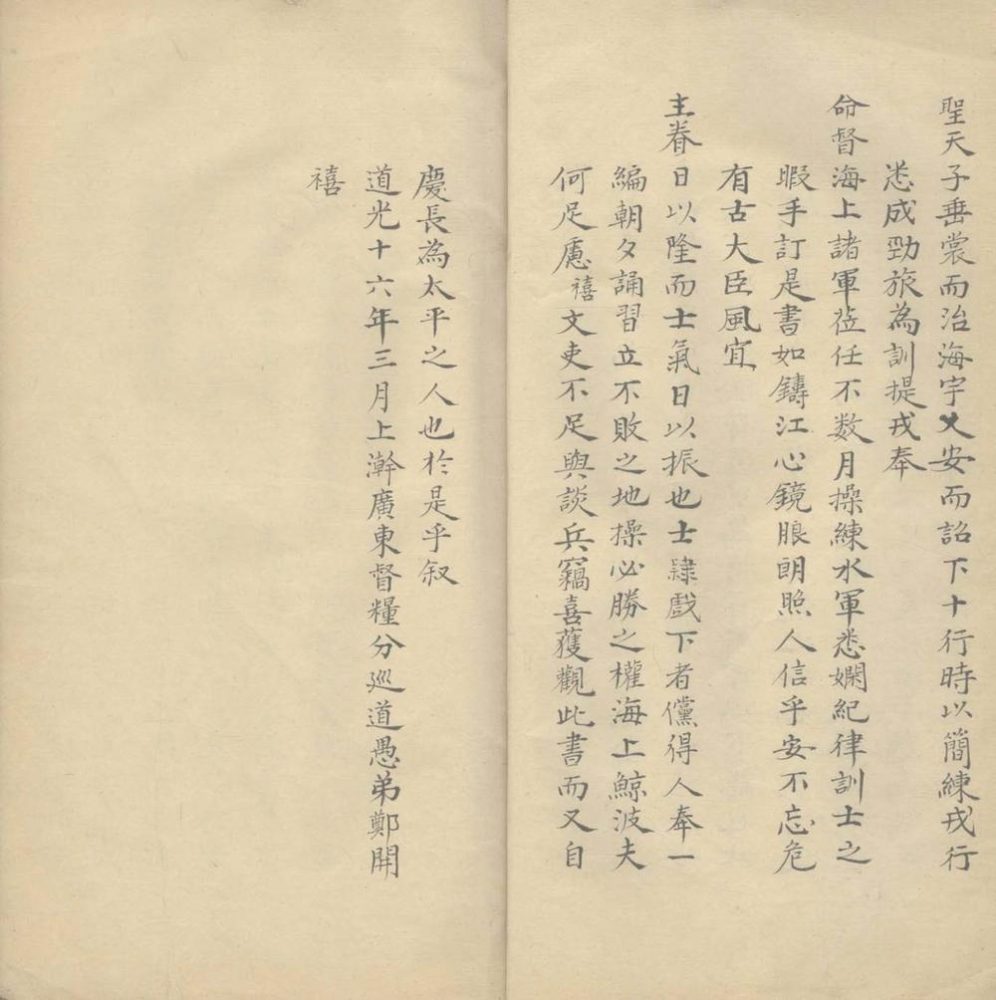 聖天子垂裳而治海宇乂安而詔下十行時以簡練戎行
悉成勁旅為訓提戎奉
命督海上諸軍莅任不数月操練水軍悉嫻紀律訓士之
暇手訂是書如鑄江心鏡眼朗照人信乎安不忘危
有古大臣風宜
主眷日以隆而士氣日以振也士隸戲下者儻得人奉一
編朝夕誦習立不敗之地操必勝之權海上鯨波夫
何足慮禧文吏不足與談兵竊喜獲觀此書而又自
慶長為太平之人也於是乎叙
道光十六年三月上澣廣東督糧分巡道愚弟鄭開
禧